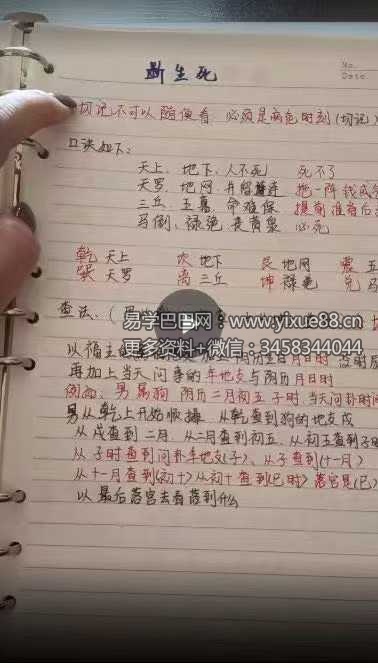 No.
Date
断生死
切记不可以随便看.必须是病危时刻(切记)
口诀如下:
天上.地下.人不死 死不了
天罗.地网.并留连 花一阵钱
三丘.五墓.命难保 提前准备后
马倒.禄绝.丧黄泉 必死
乾天上 坎地下 艮地网 震五
巽天罗 离三丘 坤禄绝 兑马
查法.(
易学巴巴网 www.yixue88.cn
更多资料+微信:3458344044
以
月日时
再加上当天问事的年地支与阴历月日时
例如.男属狗 阴历二月初五子时.当天问卦时间
男从乾上开始顺排 从乾查到狗的地支戌
从戌查到二月.从二月查到初五.从初五查到子时
从子时查到问卦年地支(子).从子查到(十一月)
从十一月查到(初十)从初十查到(巳时)落宫是(巳)
以最后落宫去看落到什么